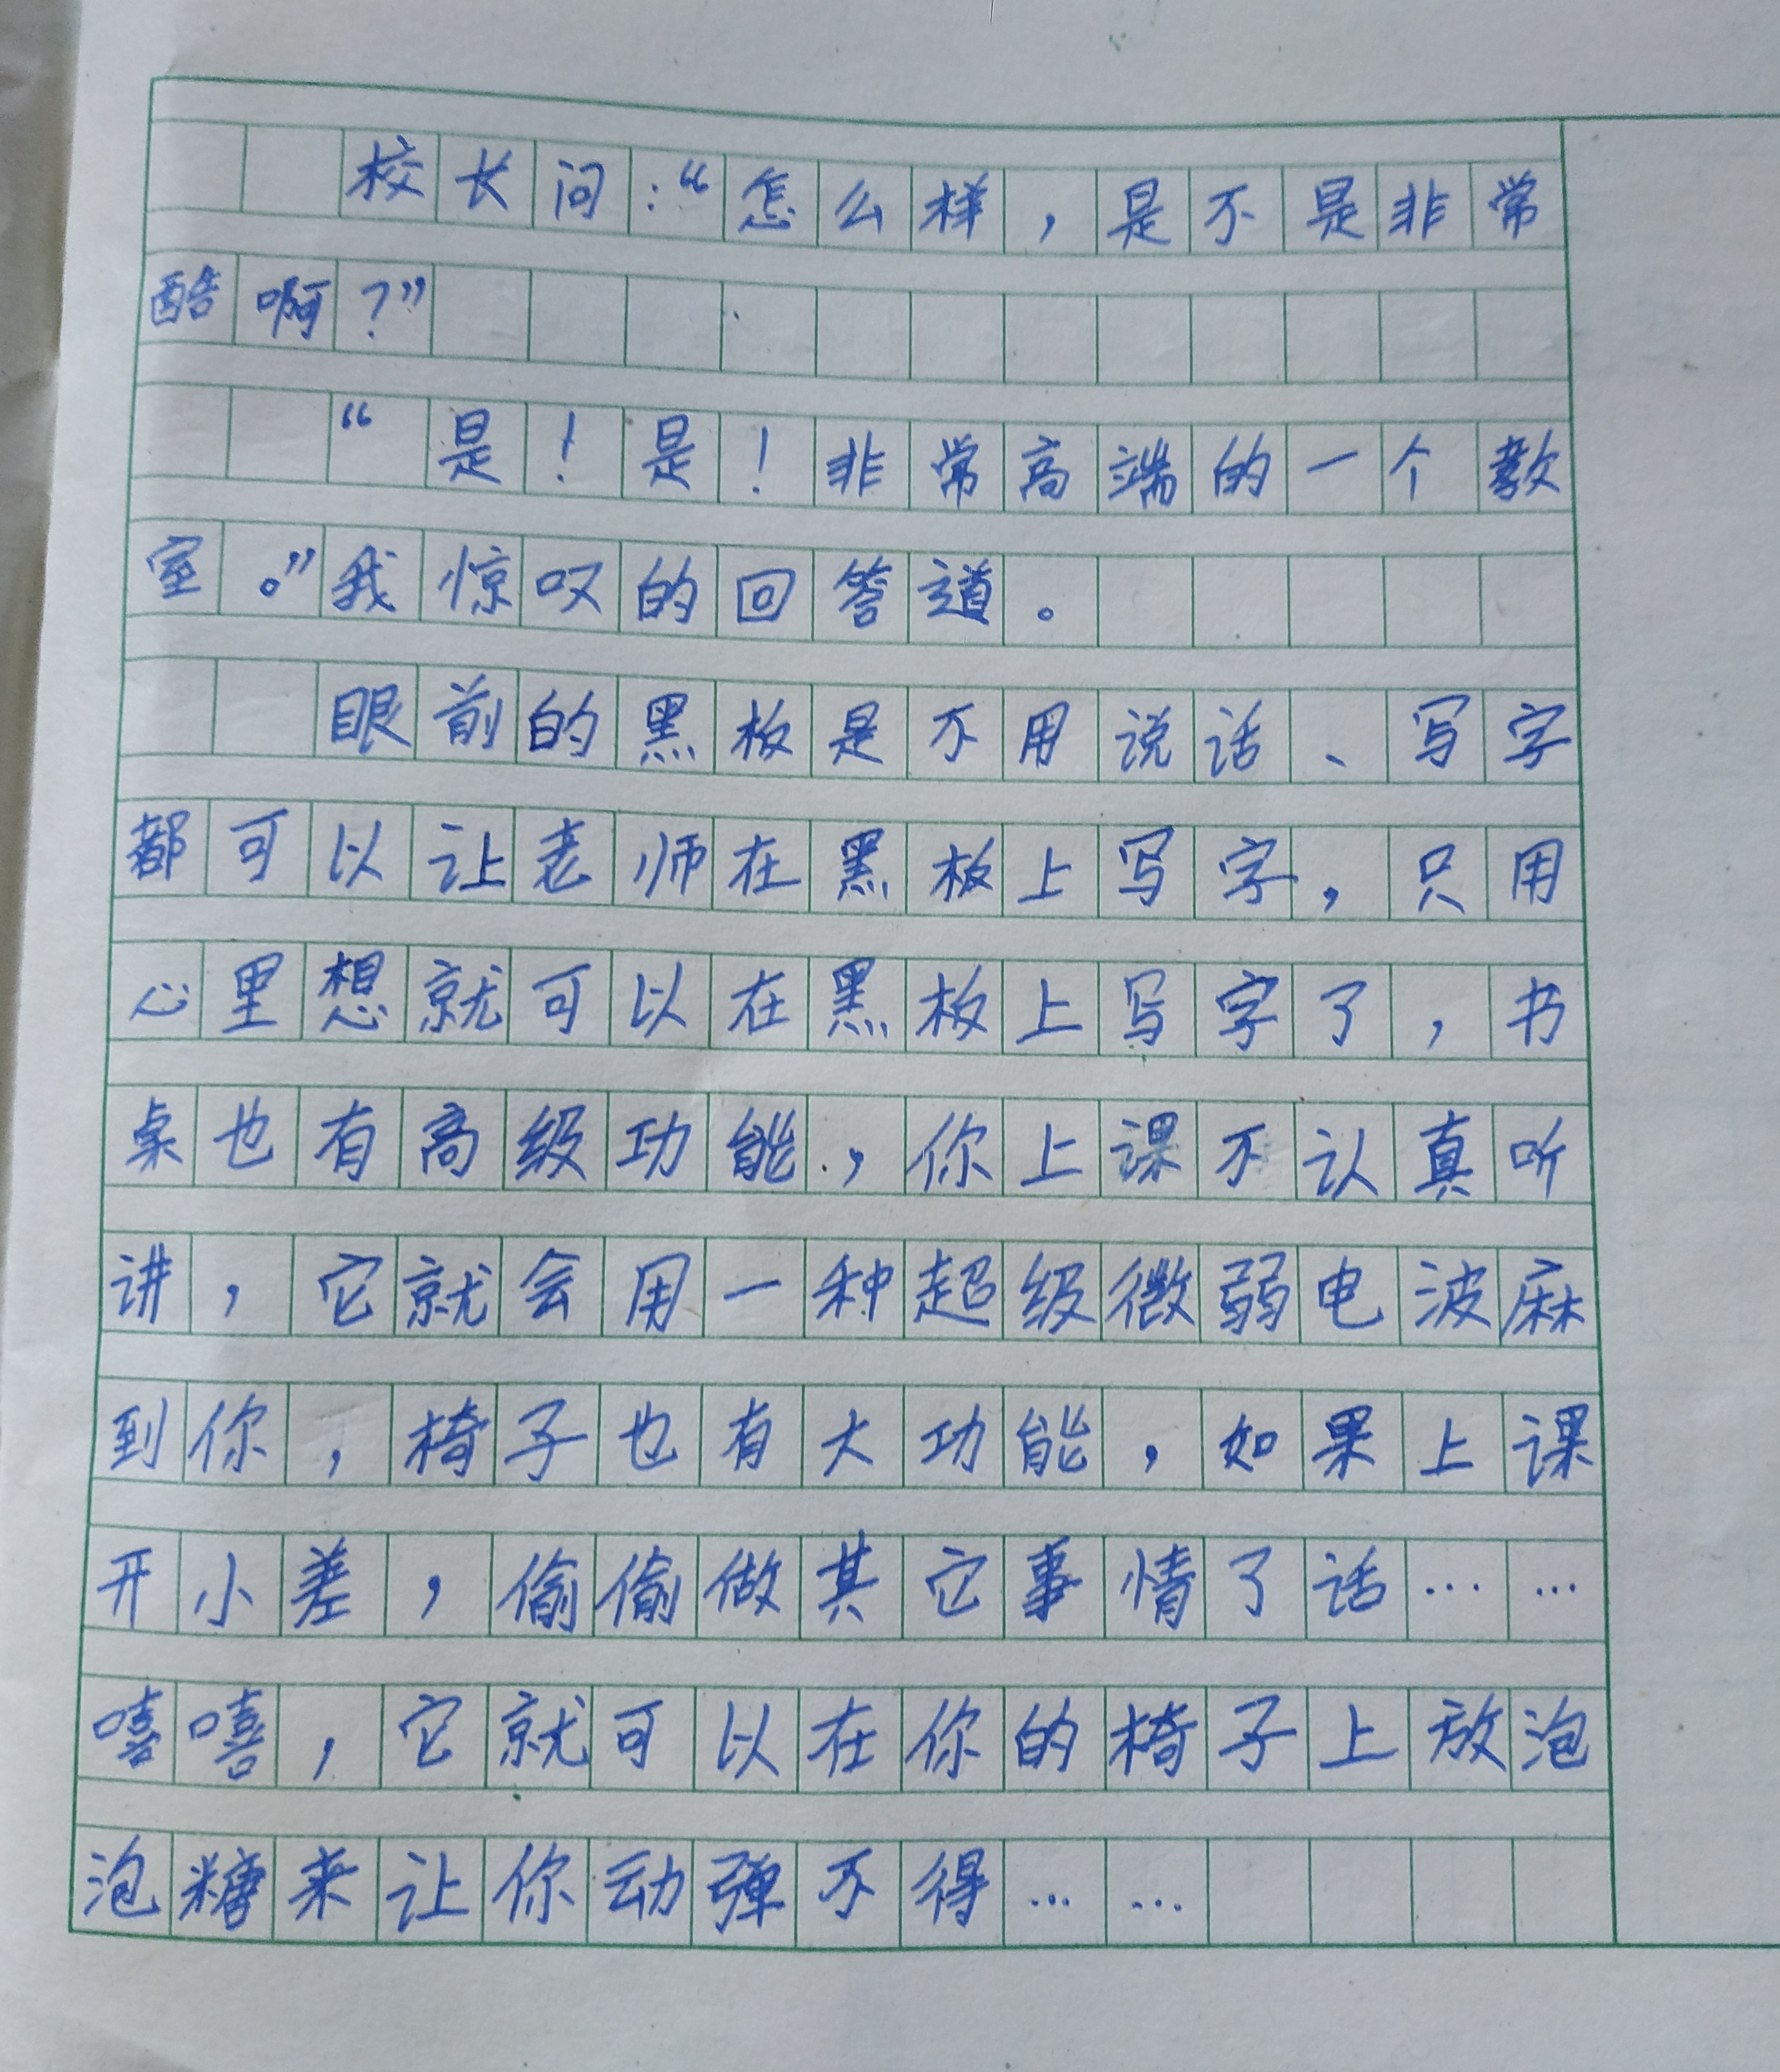 校长问：“怎么样，是不是非常
酷啊？”
“是！是！非常高端的一个教
室。”我惊叹的回答道。
眼前的黑板是不用说话、写字
都可以让老师在黑板上写字，只用
心里想就可以在黑板上写字了，书
桌也有高级功能，你上课不认真听
讲，它就会用一种超级微弱电波麻
到你，椅子也有大功能，如果上课
开小差，偷偷做其它事情了话……
嘻嘻，它就可以在你的椅子上放泡
泡糖来让你动弹不得……